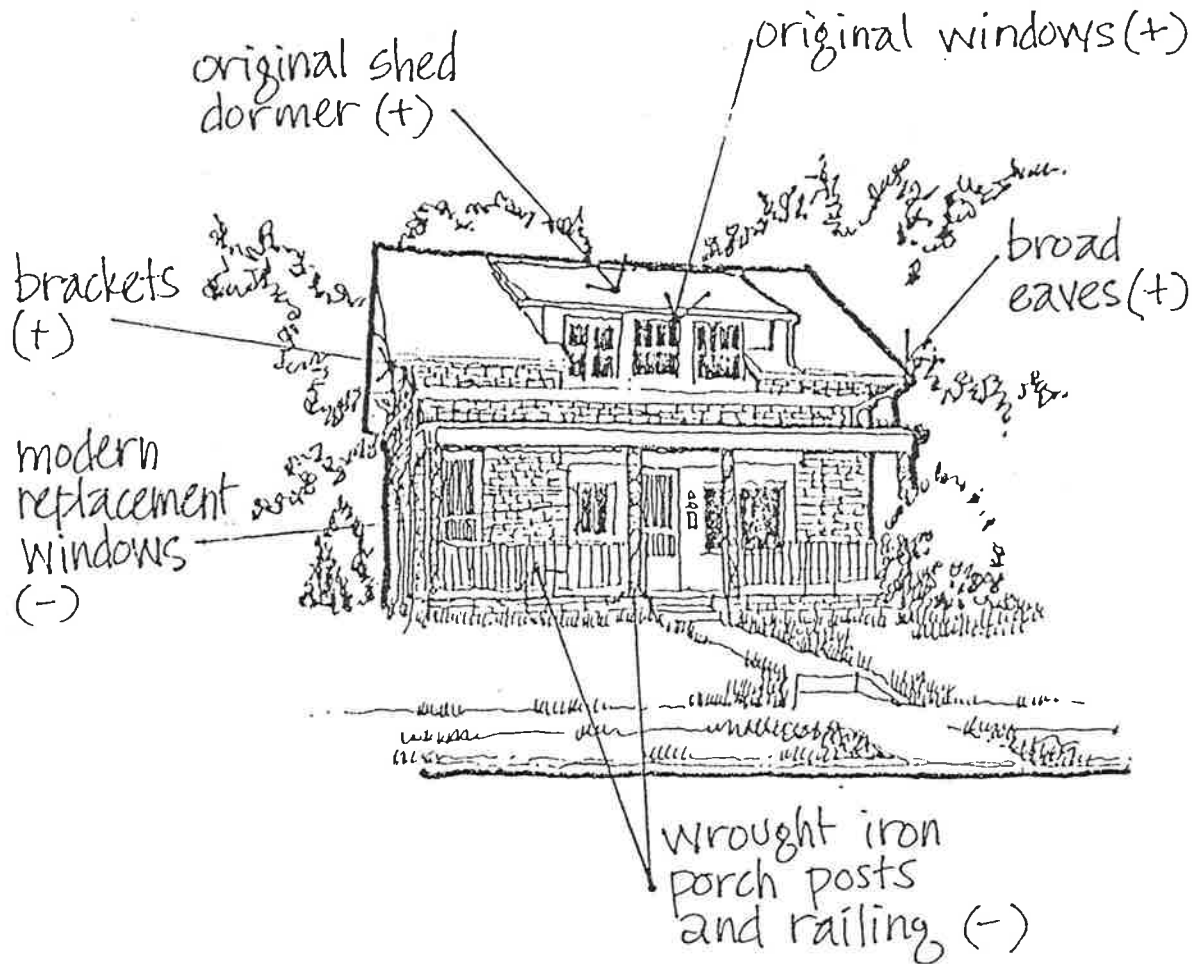 original shed
dormer (+)
original windows (+)
brackets
(+)
broad
eaves (+)
modern
replacement
windows
(-)
wrought iron
porch posts
and railing (-)